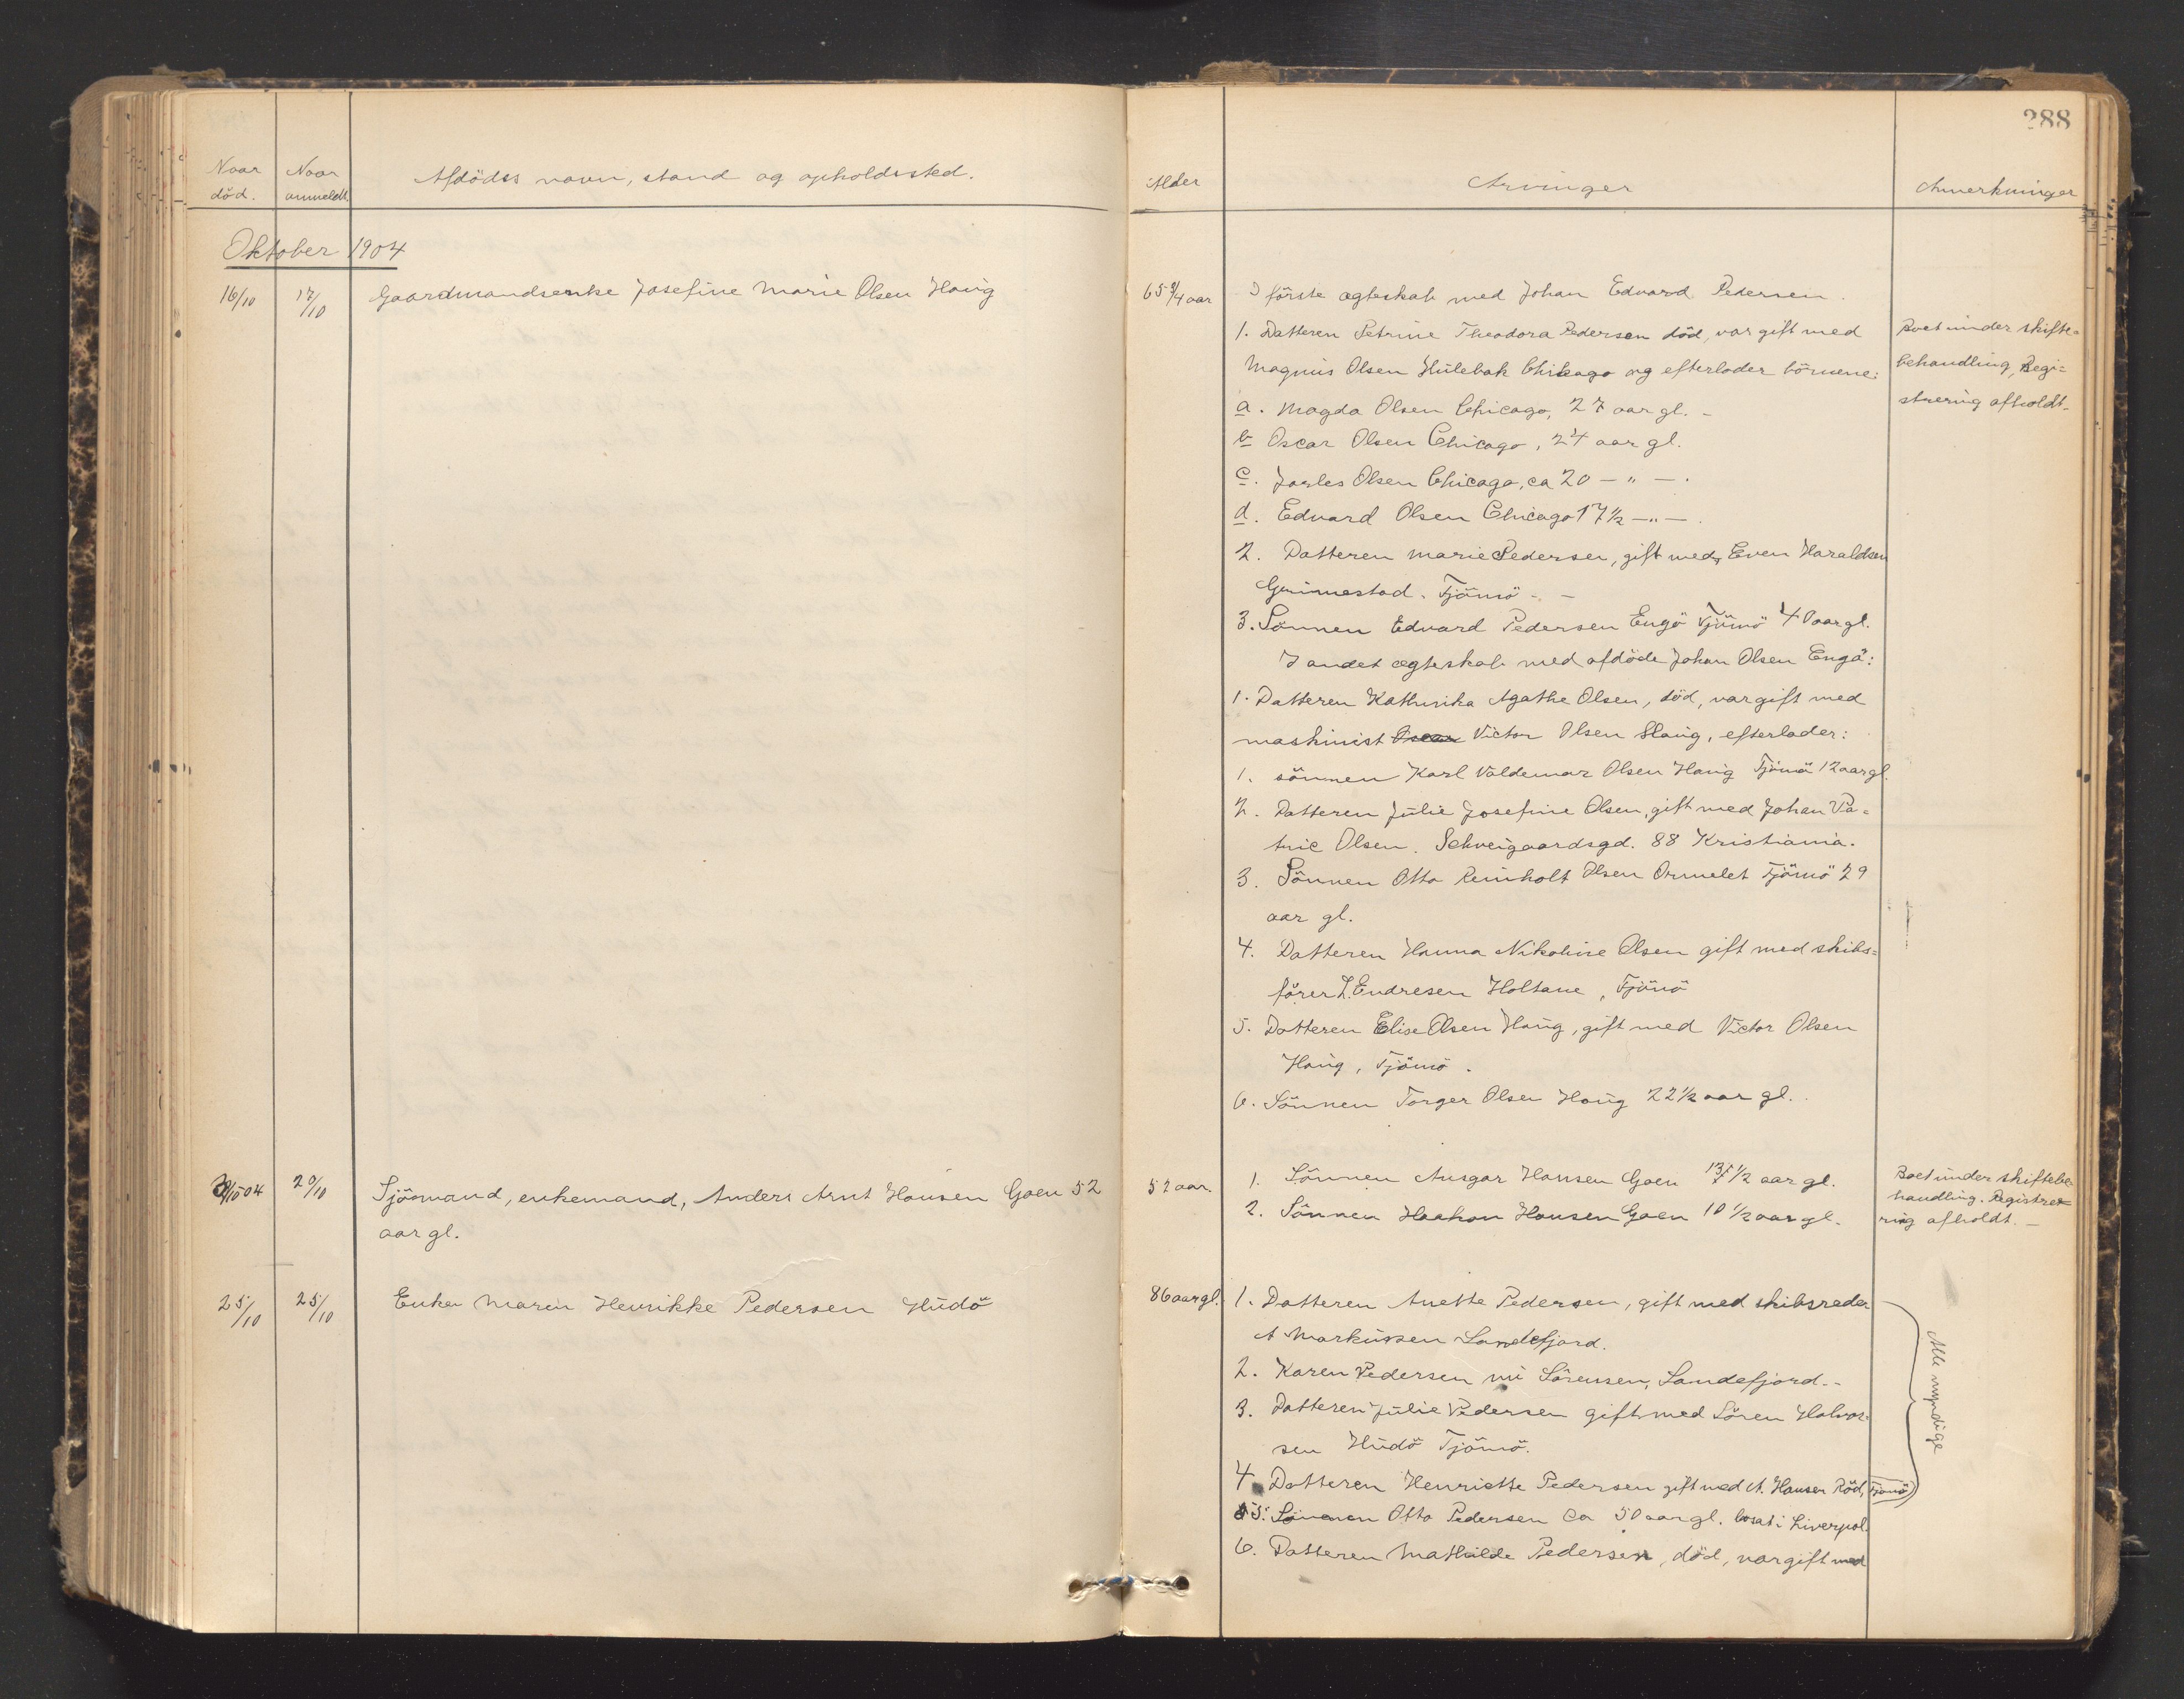 288
Naar død.
Naar anmeldt.
Afdödes navn, stand og opholdssted.
Alder
Arvinger
Anmerkninger
Oktober 1904
16/10 17/10 Gaardmandsenke Josefine Marie Olsen Haüg
65 3/4 aar
I förste ægteskab med Johan Edvard Pedersen.
1. Datteren Petrine Theodora Pedersen död, var gift med
Magnüs Olsen Hülebak Chikago og efterlader börnene:
a. Magda Olsen Chicago, 27 aar gl. -
b Oscar Olsen Chicago, 24 aar gl.
c. Jarles Olsen Chicago, ca 20 — " — .
d. Edvard Olsen Chicago 17 1/2 — " — .
2. Datteren Marie Pedersen, gift med Even Haraldsen
Grimestad. Tjömö - -
3. Sönnen Edvard Pedersen Engö Tjömö 40 aar gl.
I andet ægteskab med afdöde Johan Olsen Engö:
1. Datteren Kathinka Agathe Olsen, död, var gift med
maskinist Oscar Victor Olsen Haüg, efterlader:
1. sönnen Karl Valdemar Olsen Haüg Tjömö 12 aar gl.
2. Datteren Jülie Josefine Olsen, gift med Johan Pa=
tric Olsen. Schweigaardsgd. 88 Kristiania.
3. Sönnen Otto Reinholt Olsen Ormelet Tjömö 29
aar gl.
4. Datteren Hanna Nikoline Olsen gift med skibs=
förer L. Endresen Holtane, Tjömö
5. Datteren Elise Olsen Haüg, gift med Victor Olsen
Haüg, Tjömö.
6. Sönnen Torger Olsen Haüg 22 1/2 aar gl.
Boet ünder skifte=
behandling, Regi=
strering afholdt.
/10 04 20/10 Sjömand, enkemand, Anders Arnt Hansen Goen 52
aar gl.
52 aar.
1. Sönnen Ansgar Hansen Goen 13 1/2 aar gl.
2. Sönnen Haakon Hansen Goen 10 1/2 aar gl.
Boet ünder skiftebe=
handling. Registre=
ring afholdt. —
25/10 25/10 Enke Maren Henrikke Pedersen Hüdö
86 aar gl.
1. Datteren Anette Pedersen, gift med skibsreder
A Marküssen Sandefjord.
2. Karen Pedersen nü Sörensen, Sandefjord.-
3. Datteren Jülie Pedersen gift med Sören Halvor=
sen Hüdö Tjömö.
4. Datteren Henriette Pedersen gift med A. Hansen Röd, Tjömö
5. Sönnen Otto Pedersen ca 50 aar gl. bosat i Liverpol.
6. Datteren Mathilde Pedersen, död, var gift med
Alle myndige